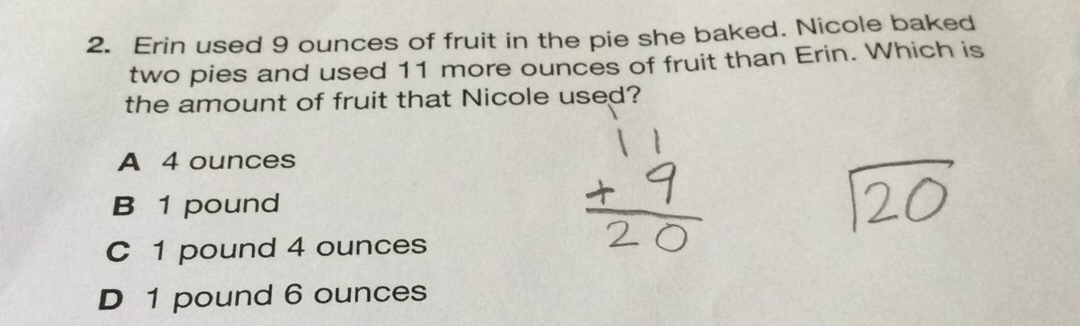 2. Erin used 9 ounces of fruit in the pie she baked. Nicole baked
two pies and used 11 more ounces of fruit than Erin. Which is
the amount of fruit that Nicole used?
A 4 ounces
B 1 pound
C 1 pound 4 ounces
D 1 pound 6 ounces
1
11
+ 9
20
20